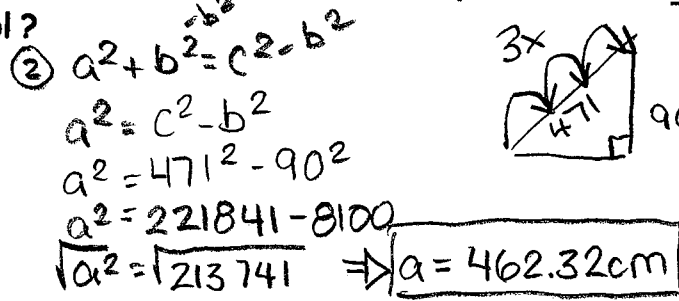 ?
② a² + b² - b² = c² - b²
a² = c² - b²
a² = 471² - 90²
a² = 221841 - 8100
√a² = √213741 ⇒ a = 462.32cm
3x
471